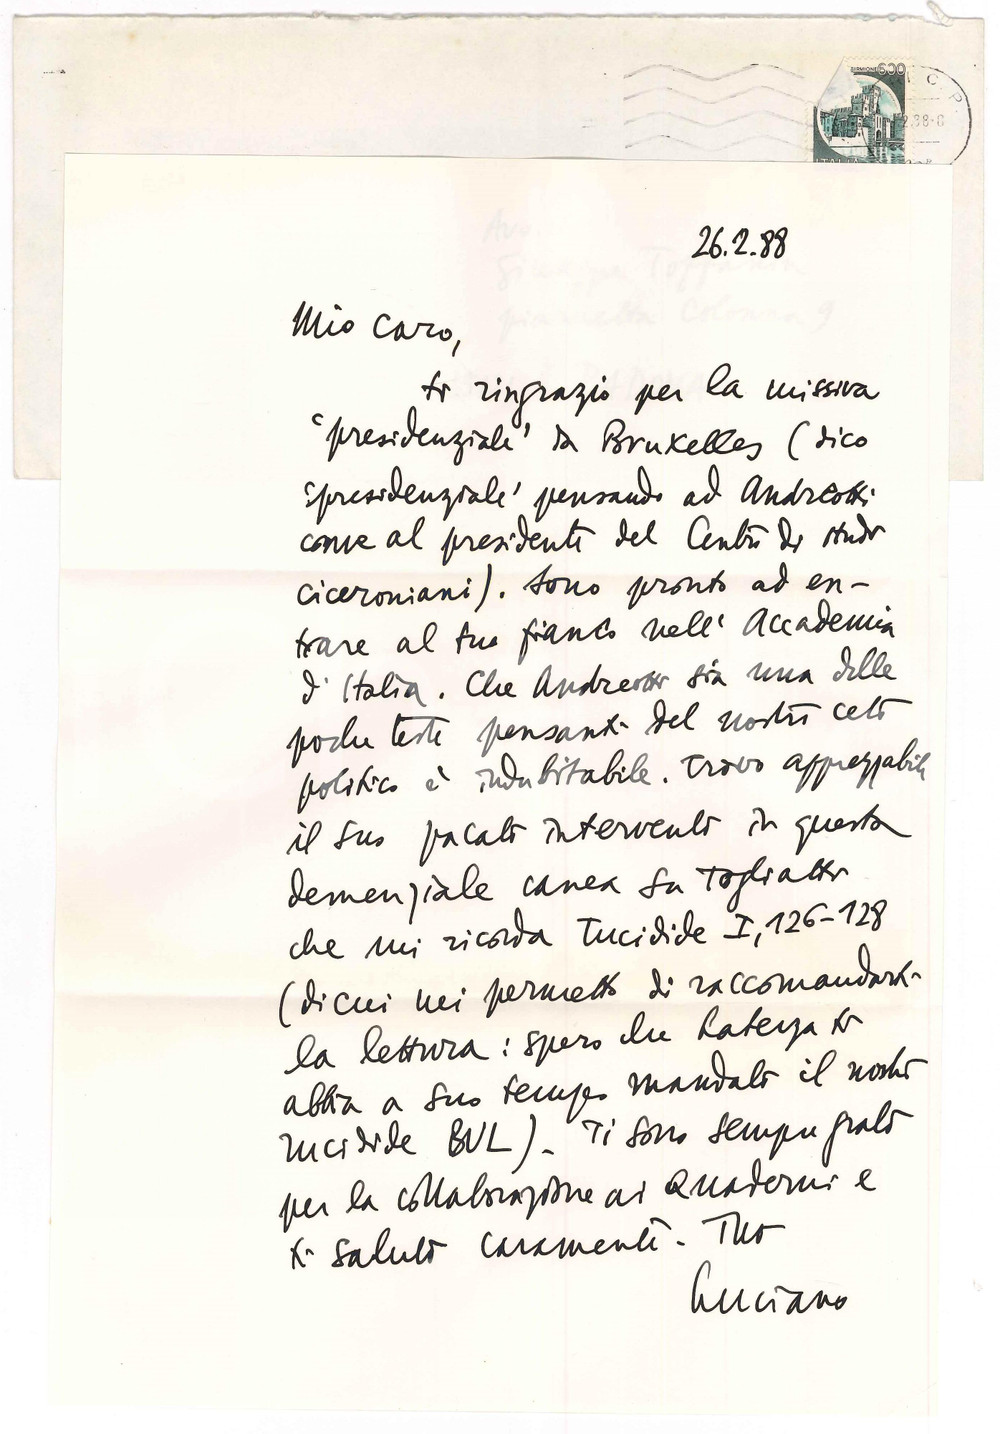 SIRMIONE 600
C. P.
2.88-8
ITALIA
26.2.88
Mio caro,
ti ringrazio per la missiva
'presidenziale' da Bruxelles (dico
'presidenziale' pensando ad Andreotti
come al presidente del Centro di studi
ciceroniani). Sono pronto ad en-
trare al tuo fianco nell' Accademia
d'Italia. Che Andreotti sia una delle
poche teste pensanti del nostro ceto
politico è indubitabile. Trovo apprezzabile
il suo pacato intervento in questa
demenziale canea su Togliatti
che mi ricorda Tucidide I, 126-128
(di cui mi permetto di raccomandarti
la lettura: spero che Laterza ti
abbia a suo tempo mandato il nostro
Tucidide BUL). Ti sono sempre grato
per la collaborazione ai Quaderni e
ti saluto caramente. Tuo
Luciano